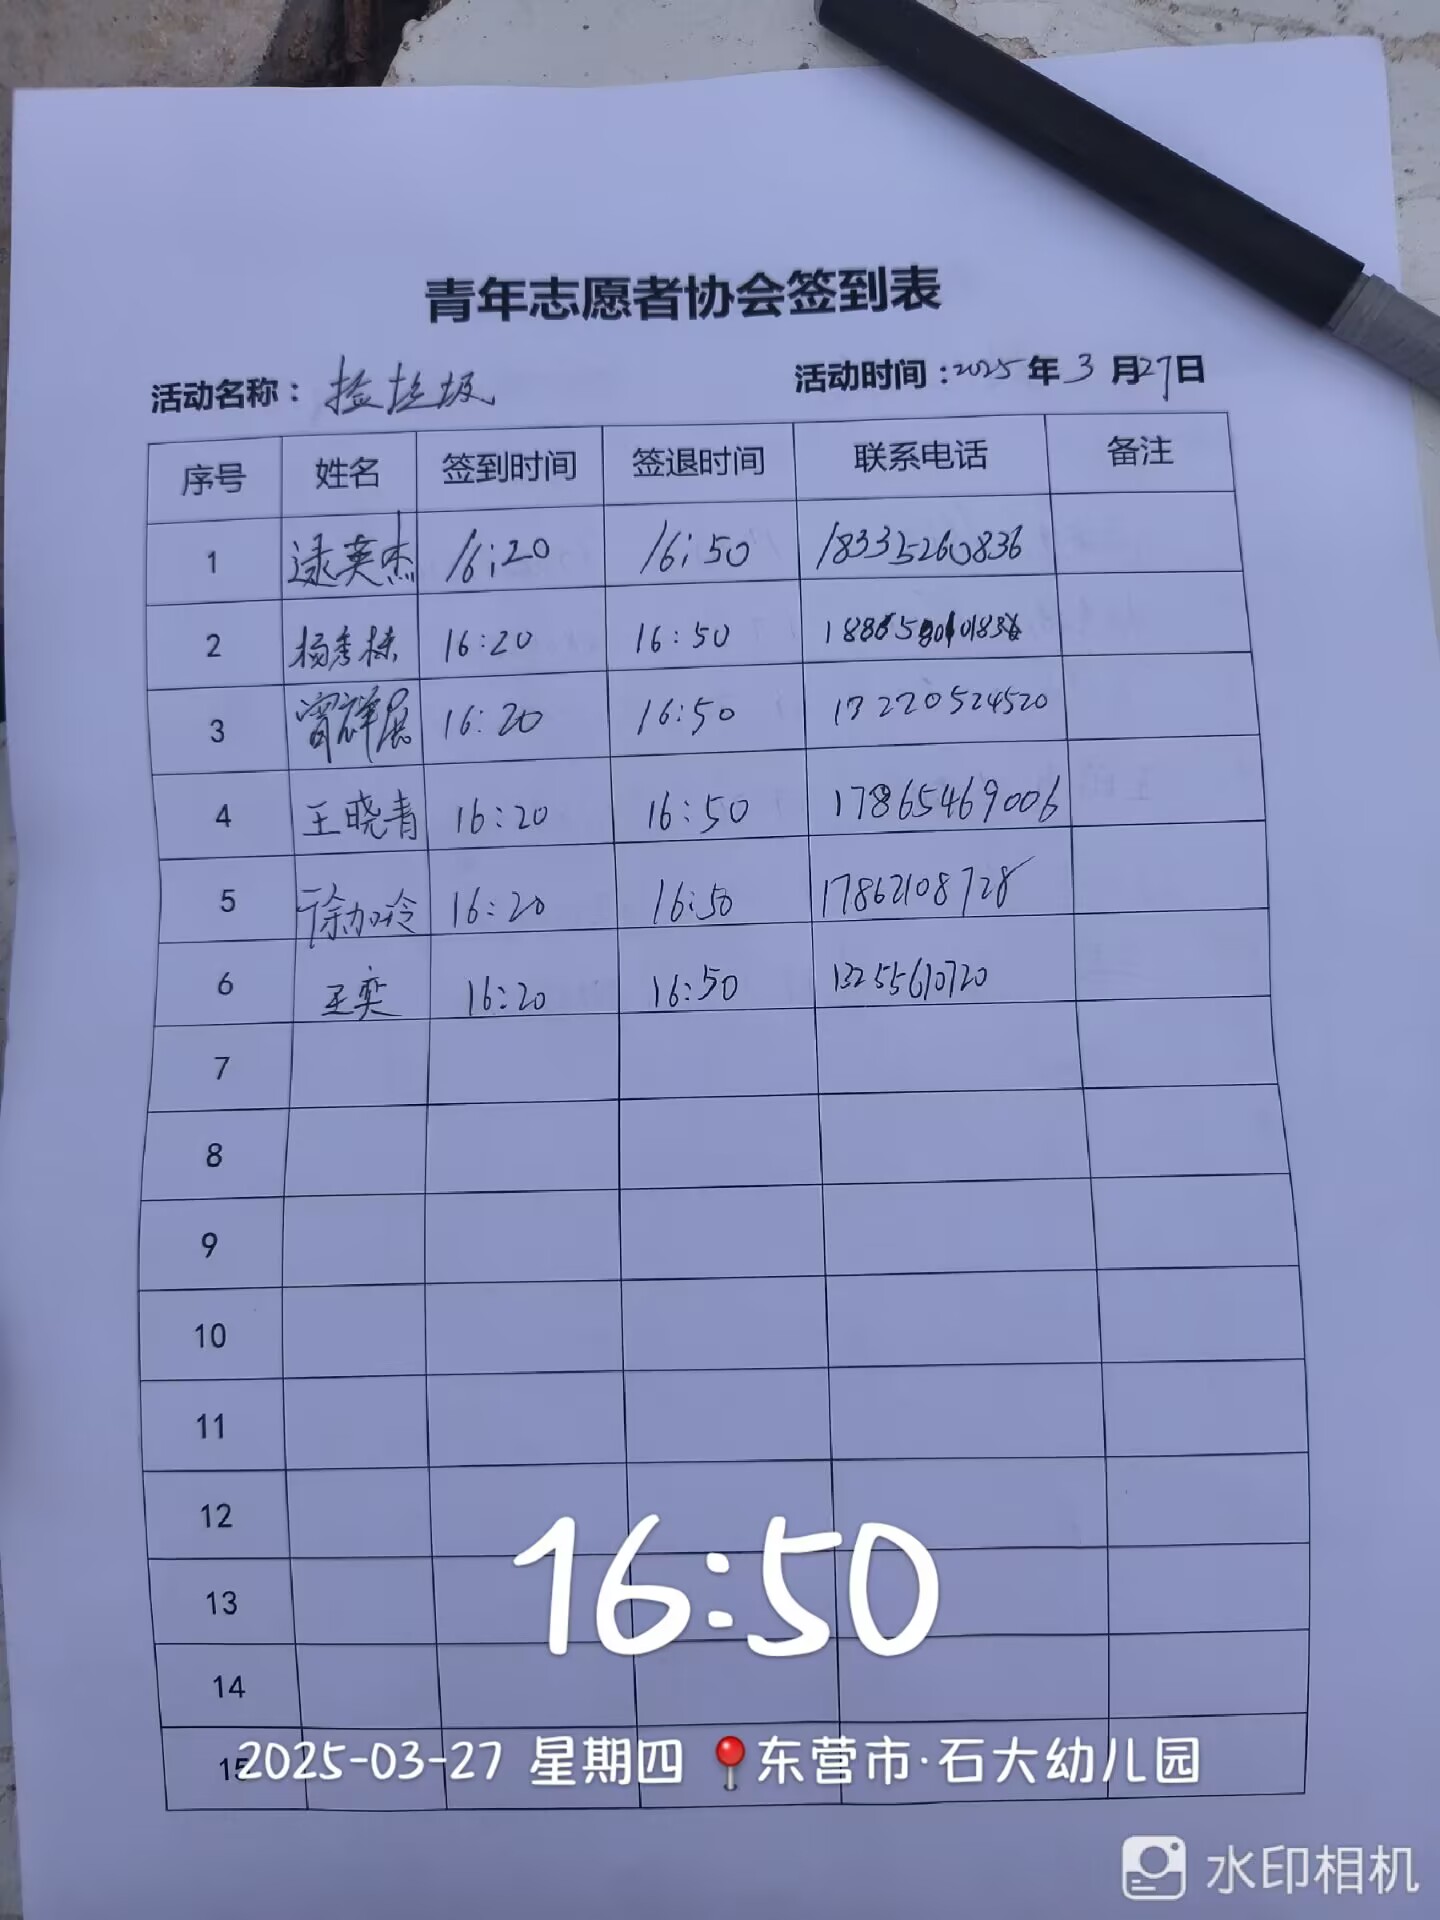 青年志愿者协会签到表
活动名称：捡垃圾 活动时间：2025年3月27日
序号 姓名 签到时间 签退时间 联系电话 备注
1 逯英杰 16:20 16:50 18335260836
2 杨秀栋 16:20 16:50
3 16:20 16:50 13220524520
4 王晓青 16:20 16:50 17865469006
5 徐加玲 16:20 16:50 17862108728
6 王奕 16:20 16:50 13255610720
7
8
9
10
11
12
13
14
15
16:50
2025-03-27 星期四 东营市·石大幼儿园
水印相机